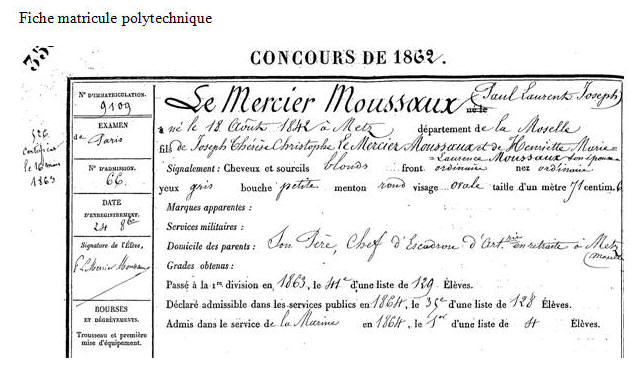 Fiche matricule polytechnique
35
CONCOURS DE 1862.
N° D'IMMATRICULATION.
9109
EXAMEN
de Paris
N° D'ADMISSION.
66.
DATE
D'ENREGISTREMENT.
24 8bre
Signature de l'Élève,
BOURSES
ET DÉGRÈVEMENTS.
Trousseau et première
mise d'équipement.
le 16 mars
1863
Le Mercier Moussaux (Paul Laurent Joseph)
né le 12 Août 1842 à Metz, département de la Moselle
fils de Joseph Thérèse Christophe Le Mercier Moussaux et de Henriette Marie
Laurence Moussaux son épouse
Signalement : Cheveux et sourcils blonds front ordinaire nez ordinaire
yeux gris bouche petite menton rond visage ovale taille d'un mètre 71 centim.
Marques apparentes :
Services militaires :
Domicile des parents : Son Père, Chef d'Escadron d'Artrie en retraite à Metz
Grades obtenus :
Passé à la 1re division en 1863, le 41e d'une liste de 129 Élèves.
Déclaré admissible dans les services publics en 1864, le 35e d'une liste de 128 Élèves.
Admis dans le service de la Marine en 1864, le 1er d'une liste de 4 Élèves.